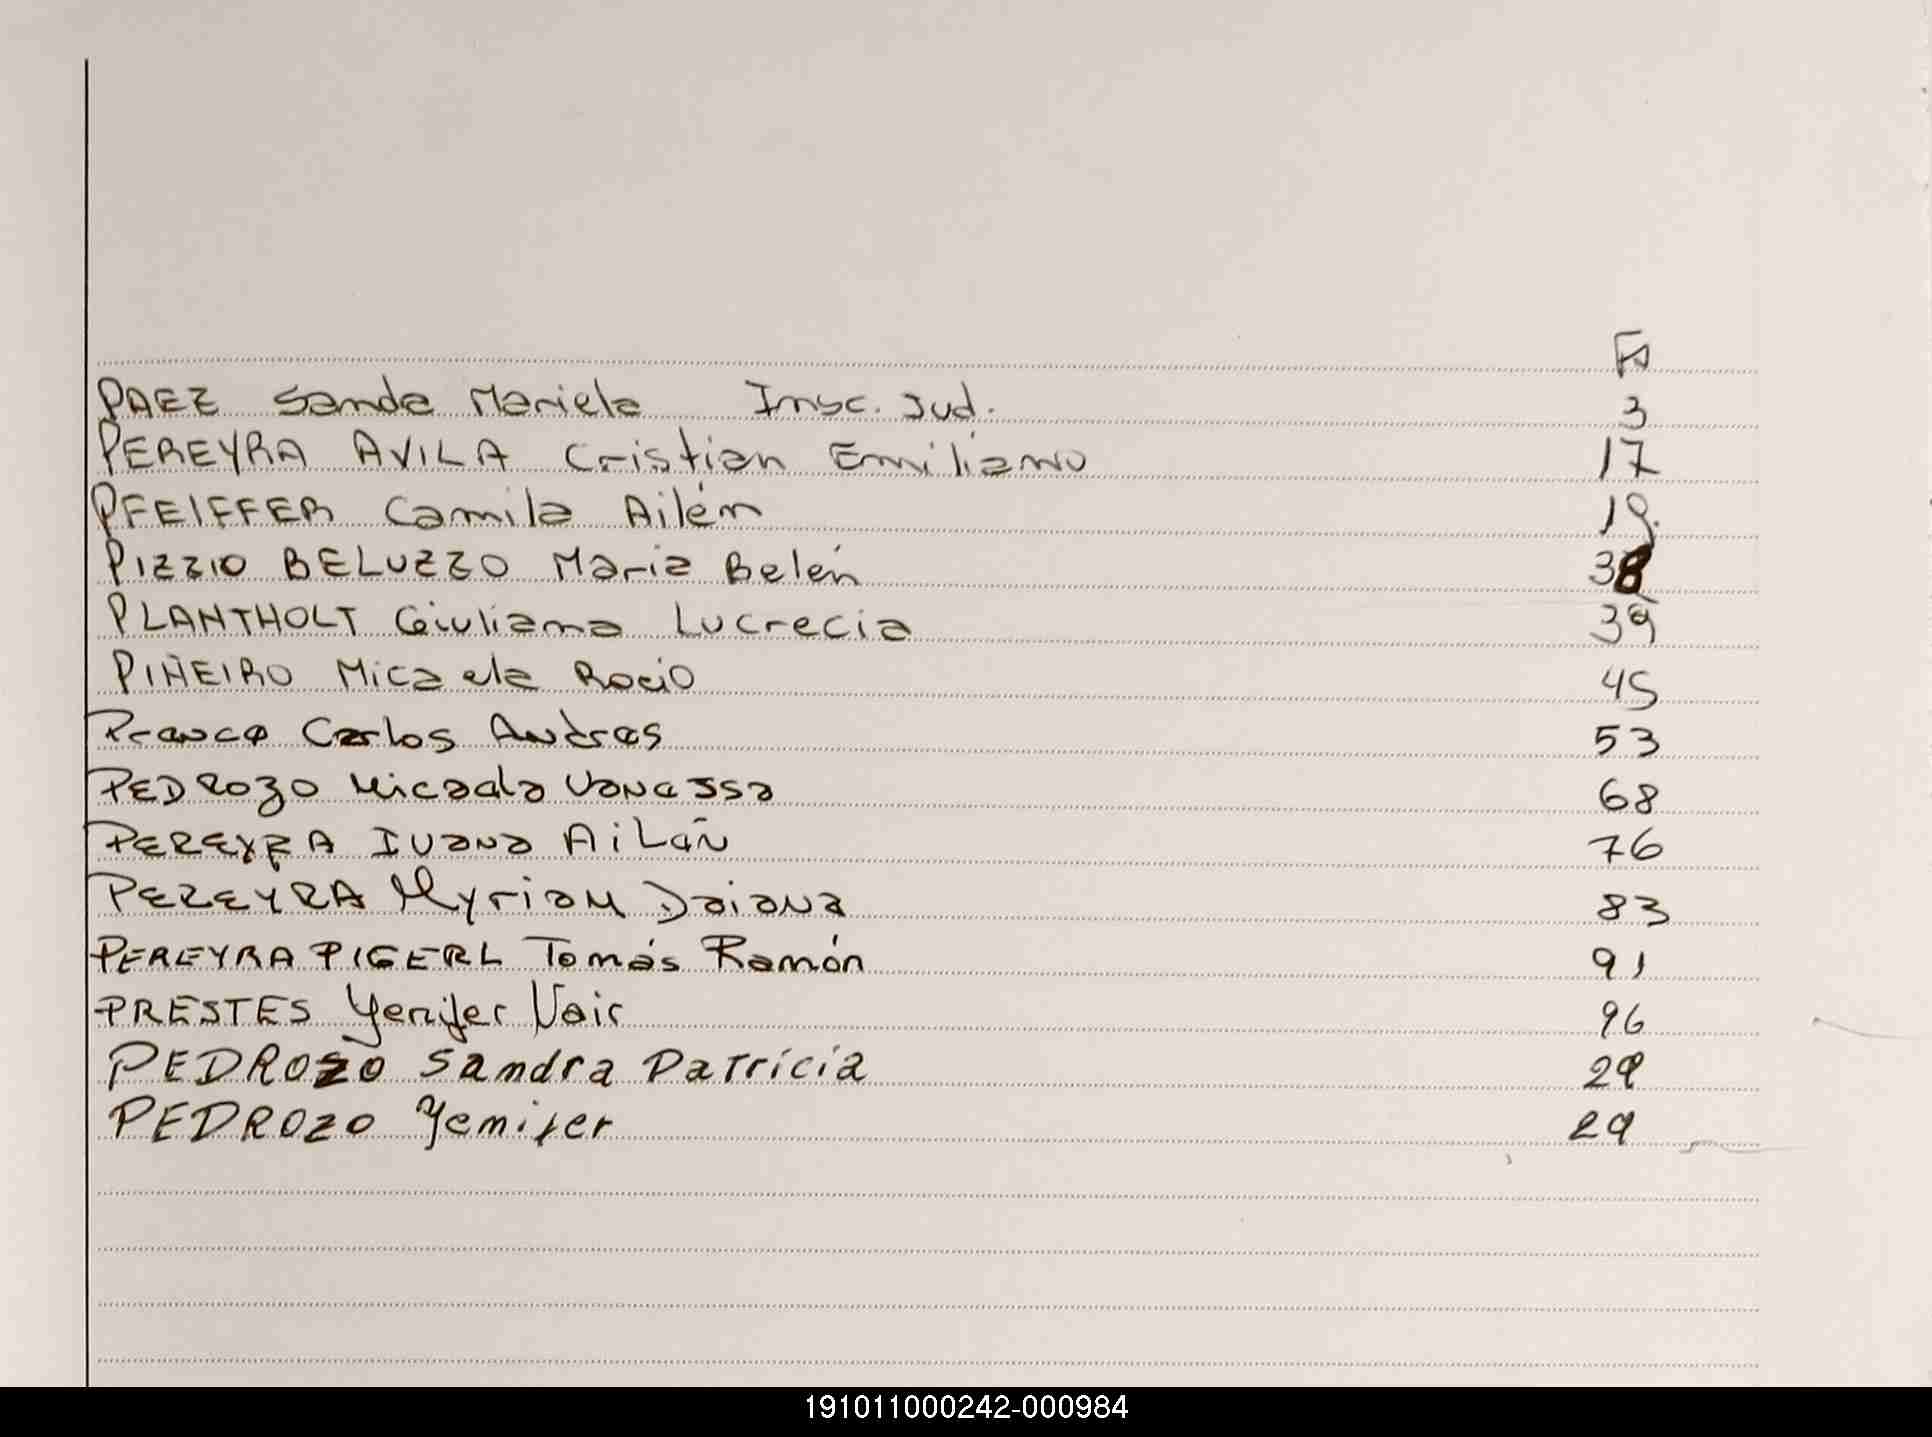 Fº
PAEZ Sanda Mariela Insc. Jud. 3
PEREYRA AVILA Cristian Emiliano 17
PFEIFFER Camila Ailén 19
PIZZIO BELUZZO Maria Belén 38
PLANTHOLT Giuliana Lucrecia 39
PIÑEIRO Micaela Rocio 45
Franco Carlos Andres 53
PEDROZO Micaela Vanessa 68
PEREYRA Ivana Ailén 76
PEREYRA Myriam Daiana 83
PEREYRA PIGERL Tomás Ramón 91
PRESTES Yenifer Nair 96
PEDROZO Sandra Patricia 29
PEDROZO Yenifer 29
191011000242-000984